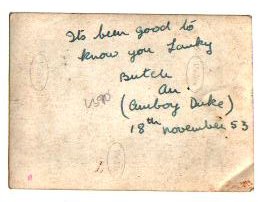 Its been good to
know you Lanky
Butch
An.
(Amboy Duke)
18th November 53